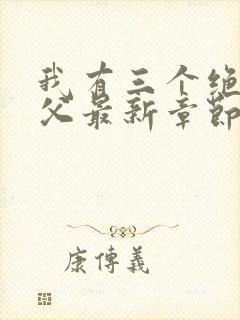 我有三个绝
父最新章节
康传義